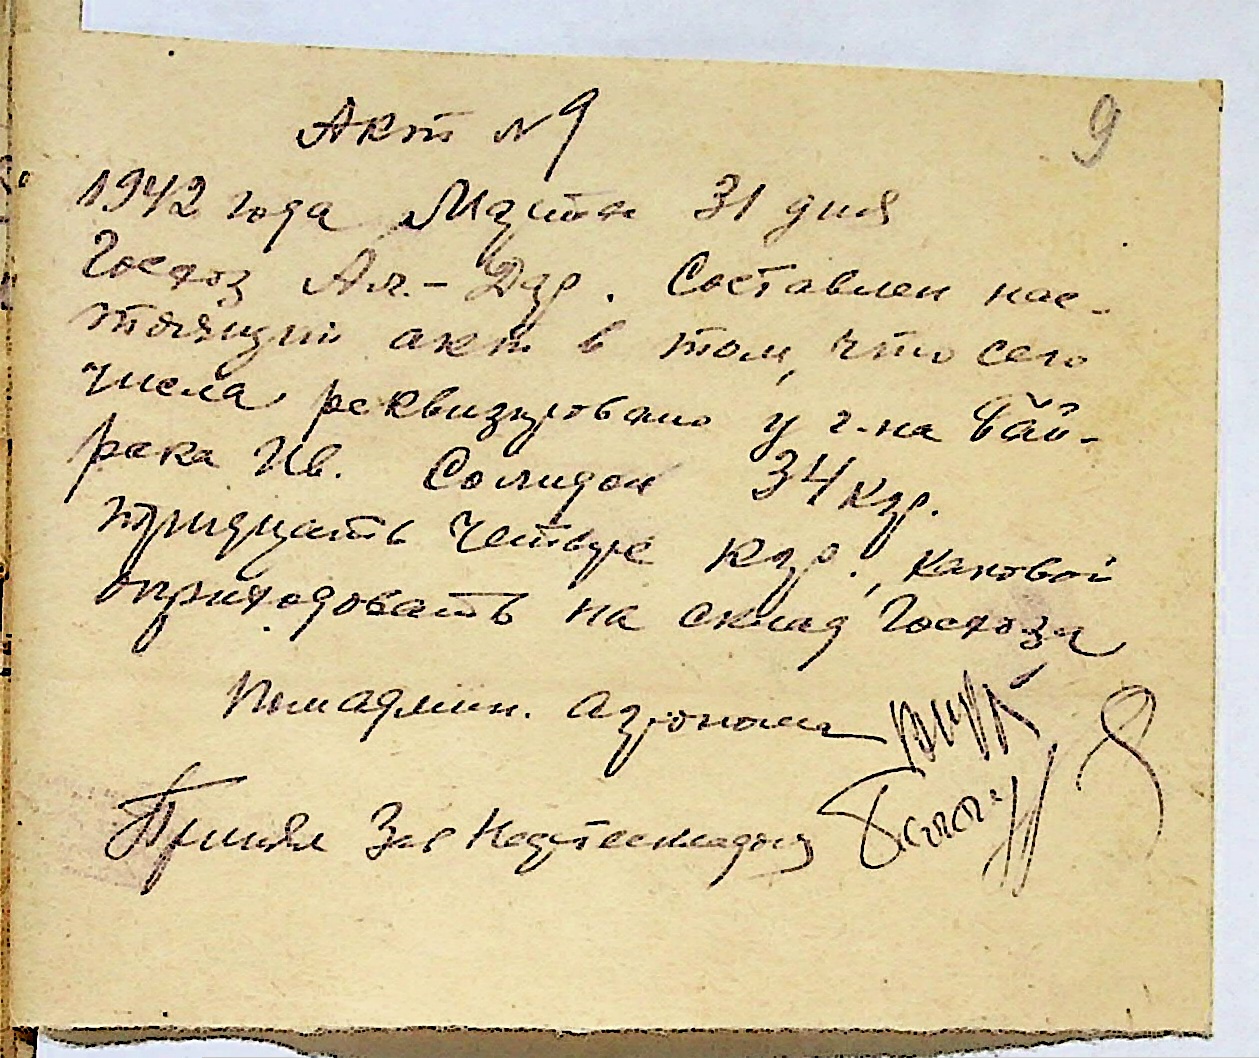 Акт № 9
9
1942 года Марта 31 дня
Госхоз Ал.-Дар. Составлен нас-
тоящий акт в том, что сего
числа реквизировано у г-на Вай-
река Ив. Солидол 34 кгр.
тридцать четыре кгр., каковой
оприходовать на склад Госхоза
Помадмин. агронома
Принял Зав Нефтескладом